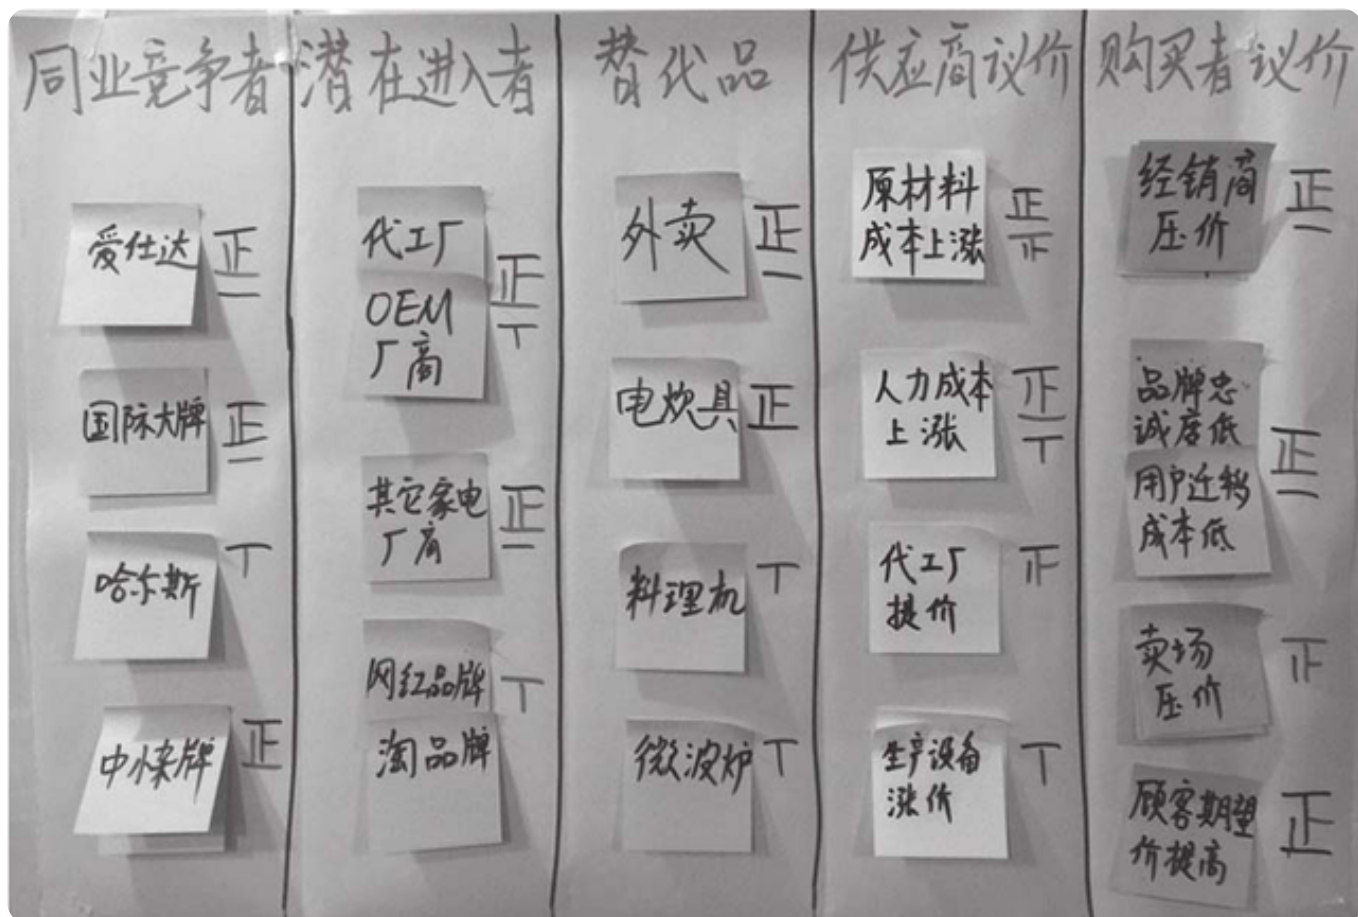 同业竞争者
爱仕达
正一
国际大牌
正一
哈尔斯
丅
中小杂牌
正
潜在进入者
代工厂
OEM
厂商
正
丅
其它家电
厂商
正一
网红品牌
丅
淘品牌
替代品
外卖
正一
电炊具
正
料理机
丅
微波炉
丅
供应商议价
原材料
成本上涨
正
正
人力成本
上涨
正
丅
代工厂
提价
正
生产设备
涨价
丅
购买者议价
经销商
压价
正一
品牌忠
诚度低
用户迁移
成本低
正一
卖场
压价
正
顾客期望
价提高
正